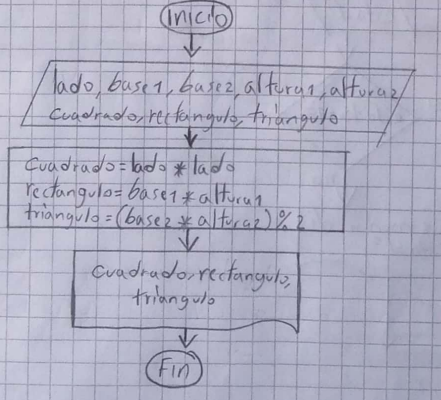 Inicio
lado, base1, base2, altura1, altura2
cuadrado, rectangulo, triángulo
cuadrado=lado * lado
rectangulo=base1 * altura1
triángulo=(base2 * altura2) % 2
cuadrado, rectangulo,
triángulo
Fin